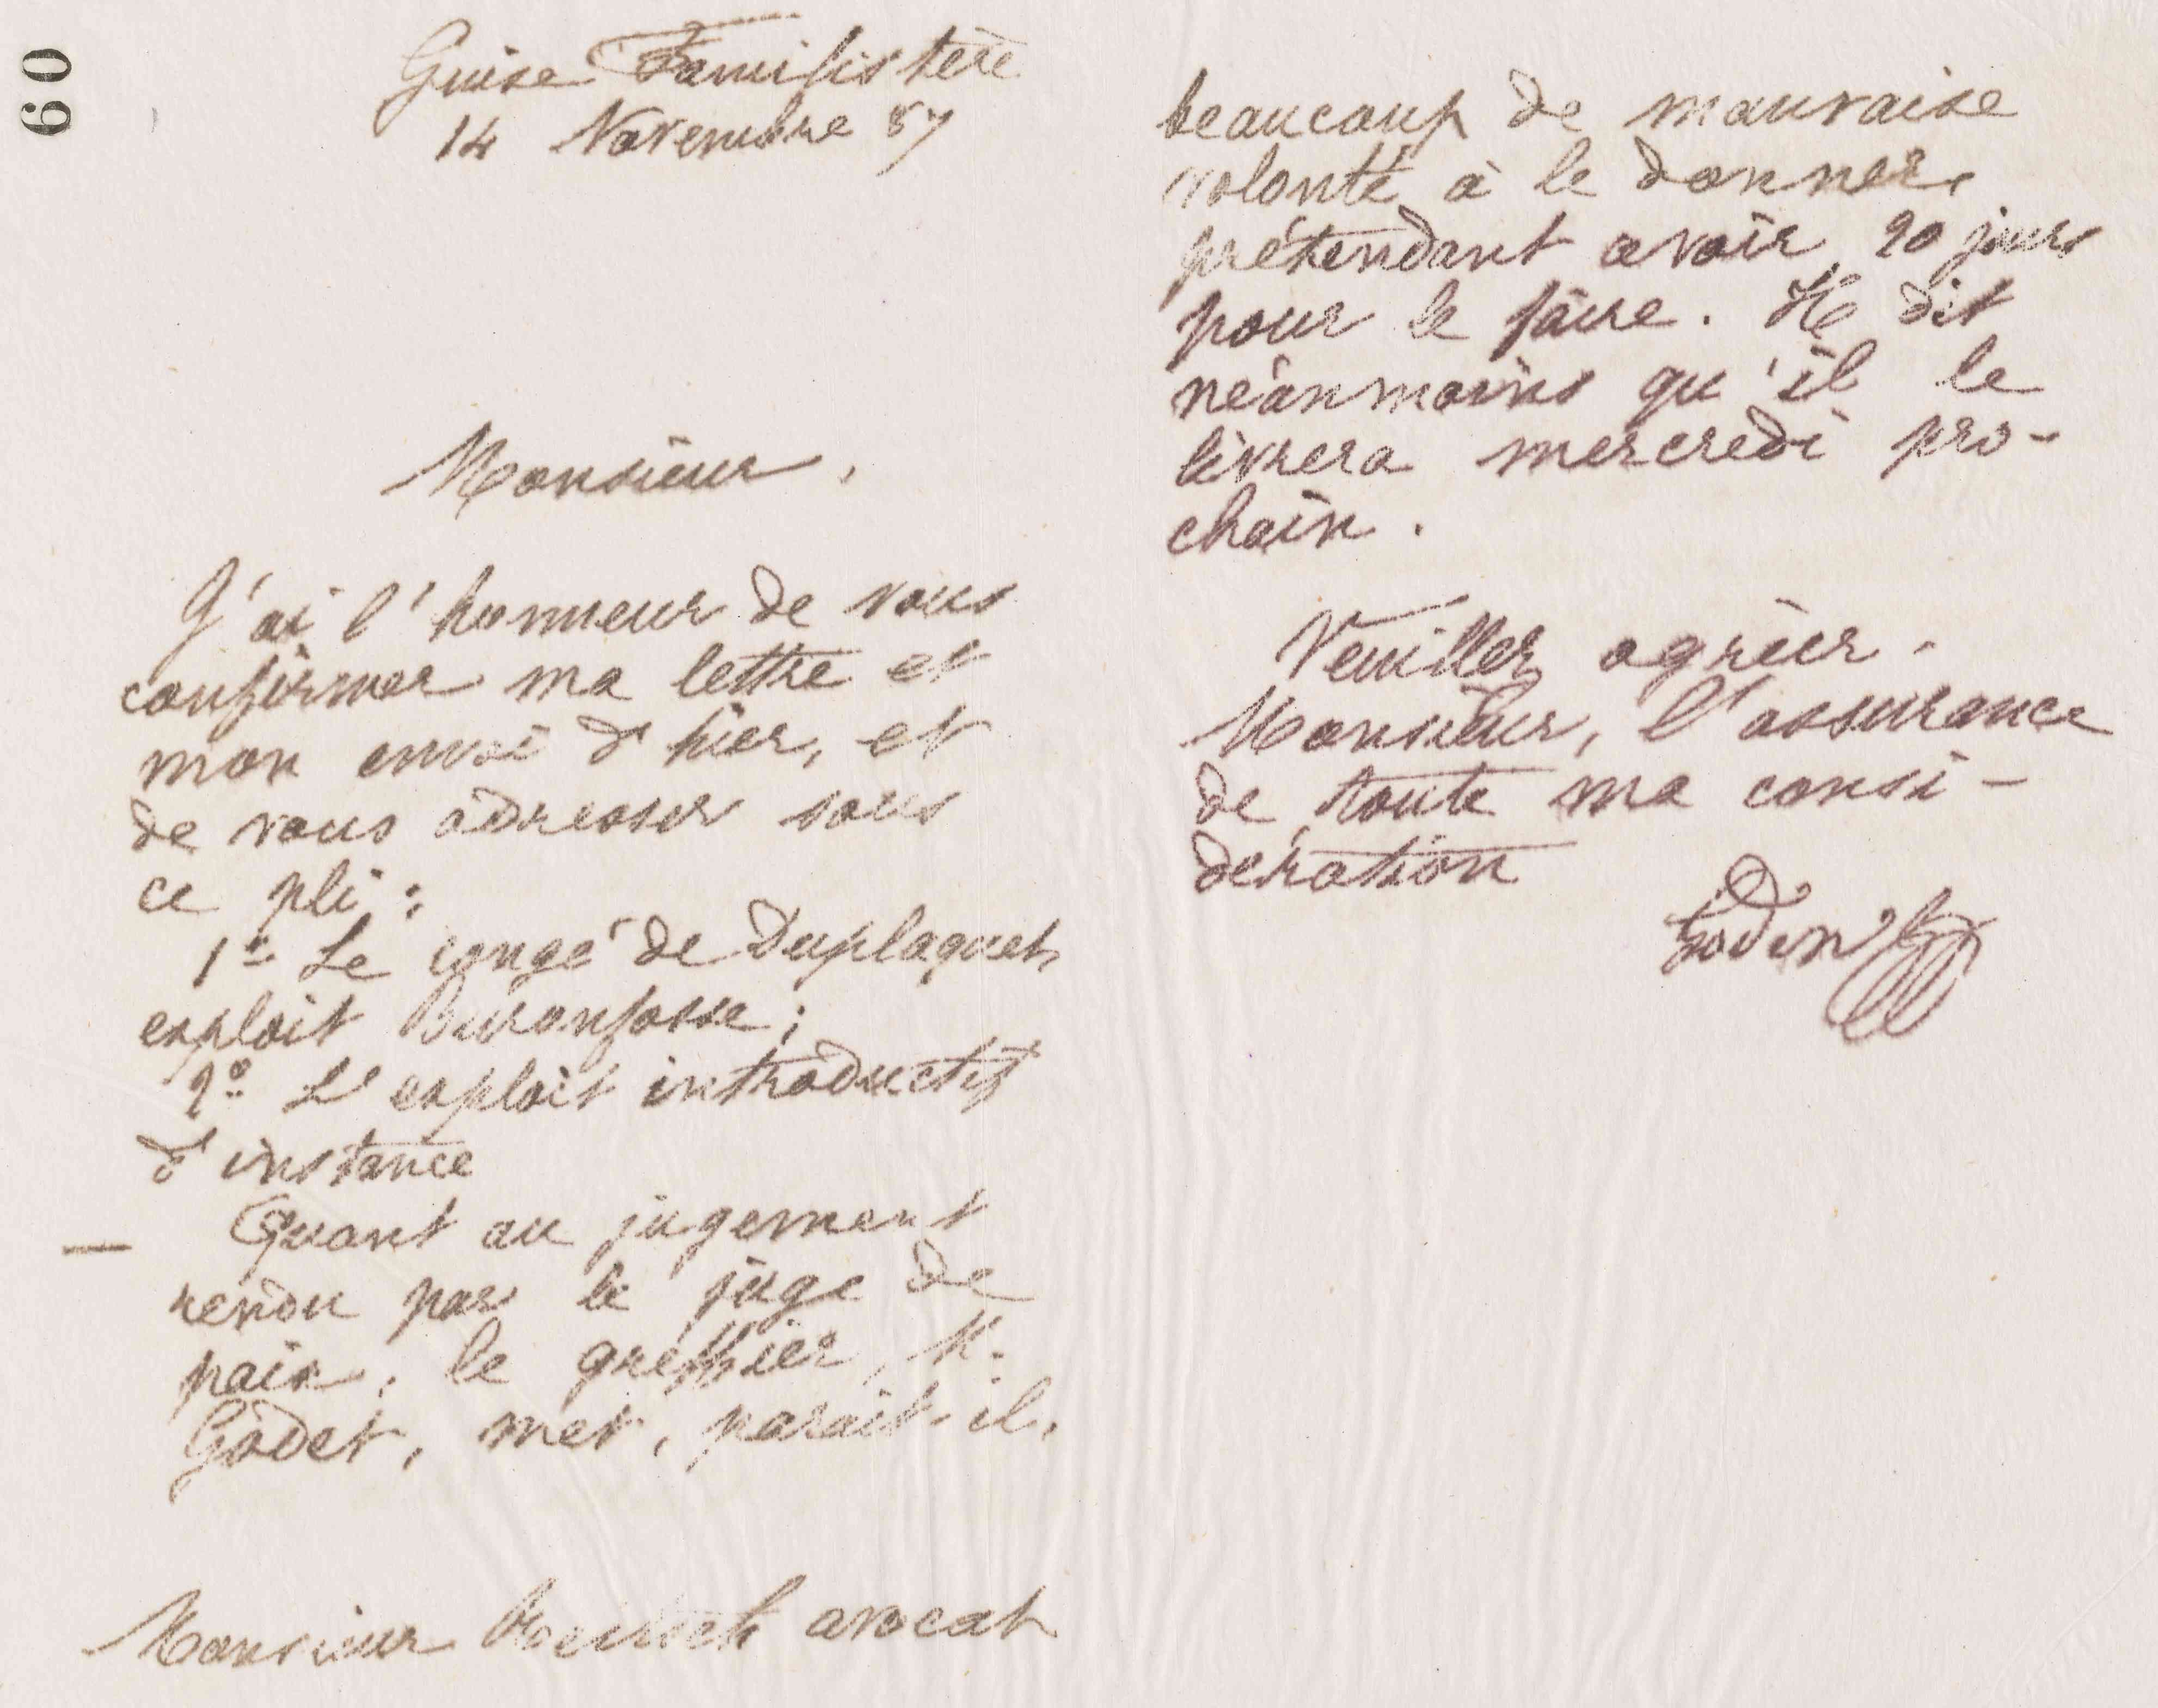 60
Guise Familistère
14 Novembre 87
Monsieur,
J'ai l'honneur de vous
confirmer ma lettre et
mon envoi d'hier, et
de vous adresser sous
ce pli :
1º Le congé de Duplaquet,
exploit Buronfosse ;
2º L'exploit introductif
d'instance
Quant au jugement
rendu par le juge de
paix, le greffier, M.
Godet, met, paraît-il,
Monsieur avocat
beaucoup de mauvaise
volonté à le donner,
prétendant avoir 20 jours
pour le faire. Il dit
néanmoins qu'il le
livrera mercredi pro-
chain.
Veuillez agréer,
Monsieur, l'assurance
de toute ma consi-
dération
Godin